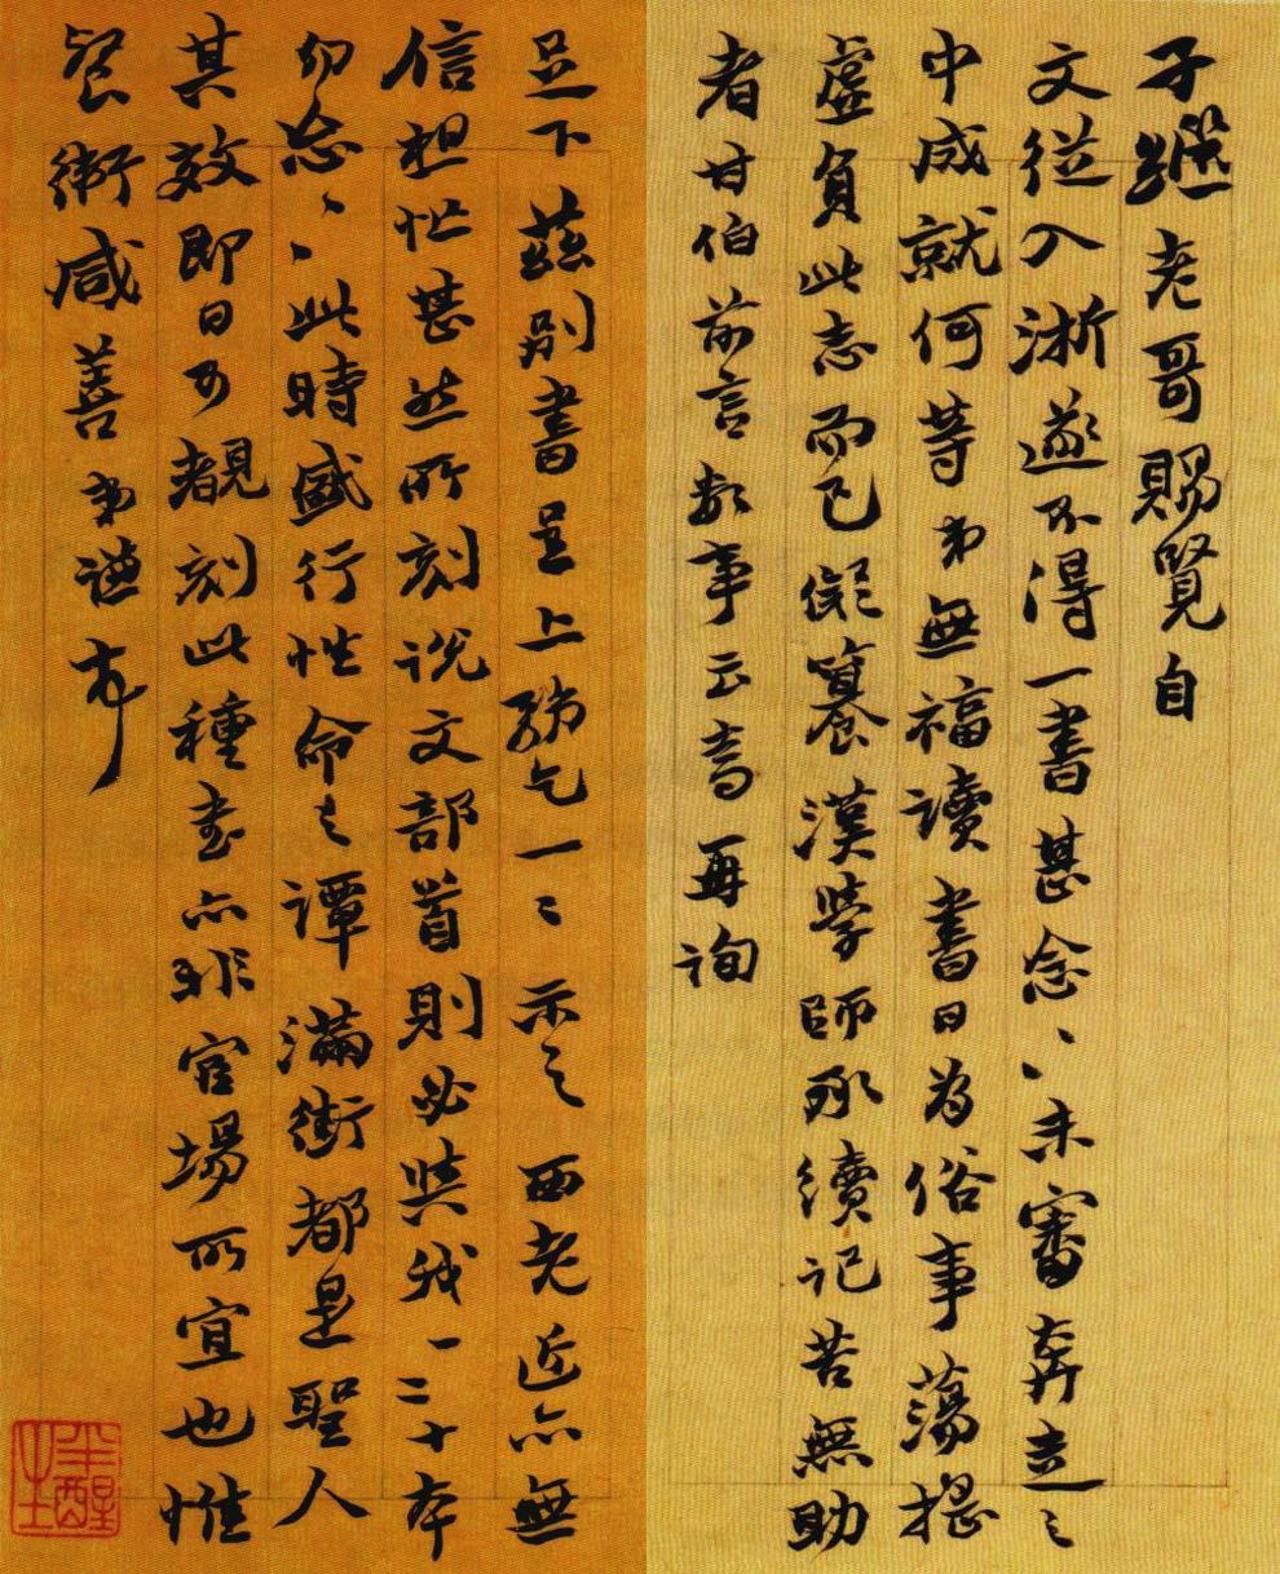 子繼老哥賜覽自
文從入浙遂不得一書甚念、、未審奔走之
中成就何等弟無福讀書日為俗事蕩搖
虛負此志而已擬簒漢學師承續記苦無助
者甘伯前言數事云嘗再詢
足下茲別書呈上務乞一二示之西老近亦無
信想忙甚然所刻說文部首則必與我一二十本
勿忘、、此時盛行性命之譚滿街都是聖人
其效即日可覩刻此種書亦非官場所宜也惟
餐衛咸善弟謙
半醒